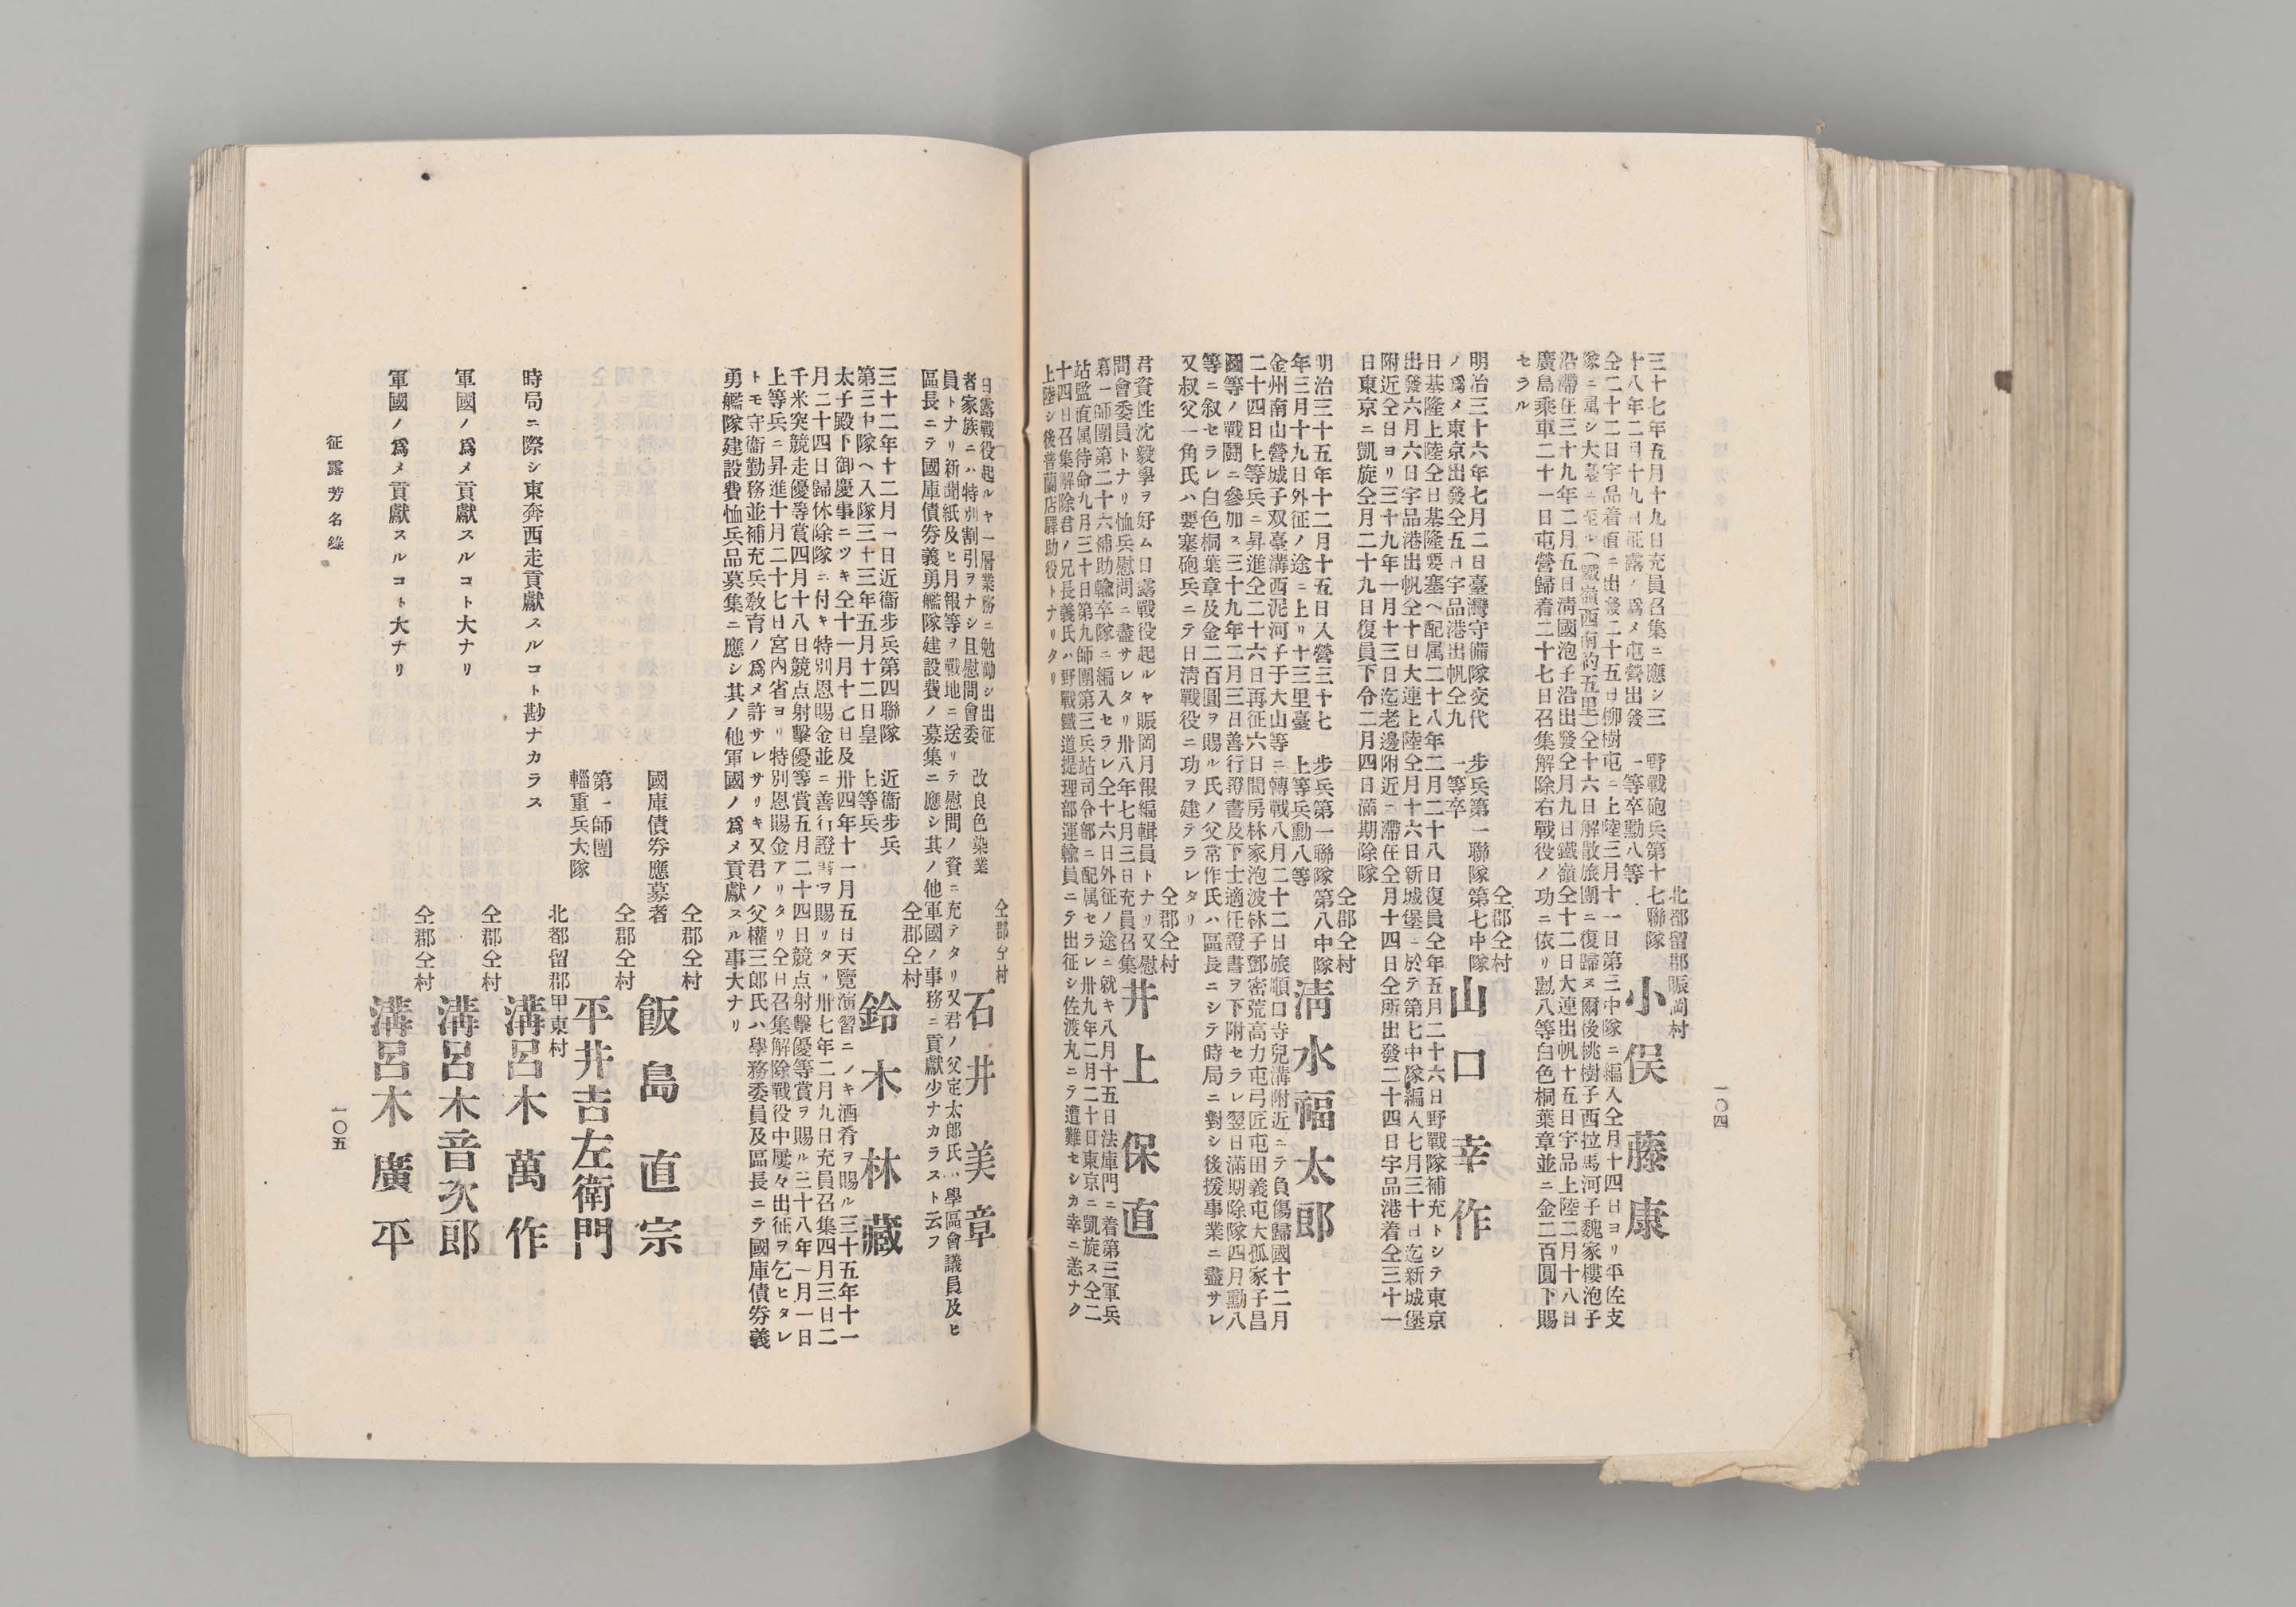 一〇四
北都留郡賑岡村
野戰砲兵第十七聯隊
一等卒勳八等
小俣藤康
三十七年五月十九日充員召集ニ應シ三
十八年二月十九日征露ノ爲メ屯營出發
仝二十二日宇品着直ニ出發二十五日柳樹屯ニ上陸三月十一日第三中隊ニ編入仝月十四日ヨリ平佐支
隊ニ屬シ大臺ニ至ル(鐵嶺西南約五里)仝十六日解散旅團ニ復歸ス爾後桃樹子西拉馬河子魏家樓泡子
沿滯在三十九年二月五日淸國泡子沿出發仝月九日鐵嶺仝十二日大連出帆十五日宇品上陸二月十八日
廣島乘車二十一日屯營歸着二十七日召集解除右戰役ノ功ニ依リ勳八等白色桐葉章並ニ金二百圓下賜
セラル
仝郡仝村
步兵第一聯隊第七中隊
一等卒
山口幸作
明治三十六年七月二日臺灣守備隊交代
ノ爲メ東京出發仝五日宇品港出帆仝九
日基隆上陸仝日基隆要塞ヘ配属二十八年二月二十八日復員仝年五月二十六日野戰隊補充トシテ東京
出發六月六日宇品港出帆仝十日大連上陸仝月十六日新城堡ニ於テ第七中隊編入七月三十日迄新城堡
附近仝日ヨリ三十九年一月十三日迄老邊附近ニ滯在仝月十四日仝所出發二十四日宇品港着仝三十一
日東京ニ凱旋仝月二十九日復員下令二月四日滿期除隊
仝郡仝村
步兵第一聯隊第八中隊
上等兵勳八等
淸水福太郎
明治三十五年十二月十五日入營三十七
年三月十九日外征ノ途ニ上リ十三里臺
金州南山營城子双臺溝西泥河子于大山等ニ轉戰八月二十二日旅順口寺兒溝附近ニテ負傷歸國十二月
二十四日上等兵ニ昇進仝二十六日再征六日間房林家泡波林子鄧密荒高力屯弓匠屯田義屯大孤家子昌
國等ノ戰鬪ニ參加ス三十九年二月三日善行證書及下士適任證書ヲ下附セラレ翌日滿期除隊四月勳八
等ニ叙セラレ白色桐葉章及金二百圓ヲ賜ル氏ノ父常作氏ハ區長ニシテ時局ニ對シ後援事業ニ盡サレ
又叔父一角氏ハ要塞砲兵ニテ日淸戰役ニ功ヲ建テラレタリ
仝郡仝村
井上保直
君資性沈毅學ヲ好ム日露戰役起ルヤ賑岡月報編輯員トナリ又慰
問會委員トナリ恤兵慰問ニ盡サレタリ卅八年七月三日充員召集
第一師團第二十六補助輸卒隊ニ編入セラレ仝十六日外征ノ途ニ就キ八月十五日法庫門ニ着第三軍兵
站監直属待命九月三十日第九師團第三兵站司令部ニ配属セラレ卅九年二月二十日東京ニ凱旋ス仝二
十四日召集解除君ノ兄長義氏ハ野戰鐵道提理部運輸員ニテ出征シ佐渡丸ニテ遭難セシカ幸ニ恙ナク
上陸シ後普蘭店驛助役トナリタリ
仝郡仝村
改良色染業
石井美章
日露戰役起ルヤ一層業務ニ勉勵シ出征
者家族ニハ特別割引ヲナシ且慰問會委
員トナリ新聞紙及ヒ月報等ヲ戰地ニ送リテ慰問ノ資ニ充テタリ又君ノ父定太郎氏ハ學區會議員及ヒ
區長ニテ國庫債券義勇艦隊建設費ノ募集ニ應シ其ノ他軍國ノ事務ニ貢獻少ナカラスト云フ
仝郡仝村
近衞步兵
上等兵
鈴木林藏
三十二年十二月一日近衞步兵第四聯隊
第三中隊ヘ入隊三十三年五月十二日皇
太子殿下御慶事ニツキ仝十一月十七日及卅四年十一月五日天覽演習ニノキ酒肴ヲ賜ル三十五年十一
月二十四日歸休除隊ニ付キ特別恩賜金並ニ善行證書ヲ賜リタリ卅七年二月九日充員召集四月三日二
千米突競走優等賞四月十八日競点射擊優等賞五月二十四日競点射擊優等賞ヲ賜ル三十八年一月一日
上等兵ニ昇進十月二十七日宮内省ヨリ特別恩賜金アリタリ仝日召集解除戰役中屢々出征ヲ乞ヒタレ
トモ守衞勤務並補充兵敎育ノ爲メ許サレサリキ又君ノ父權三郎氏ハ學務委員及區長ニテ國庫債券義
勇艦隊建設費恤兵品募集ニ應シ其ノ他軍國ノ爲メ貢獻スル事大ナリ
仝郡仝村
國庫債券應募者
飯島直宗
仝郡仝村
第一師團
輜重兵大隊
平井吉左衞門
北都留郡甲東村
時局ニ際シ東奔西走貢獻スルコト尠ナカラス
溝呂木萬作
仝郡仝村
軍國ノ爲メ貢獻スルコト大ナリ
溝呂木音次郎
仝郡仝村
軍國ノ爲メ貢獻スルコト大ナリ
溝呂木廣平
征露芳名錄
一〇五